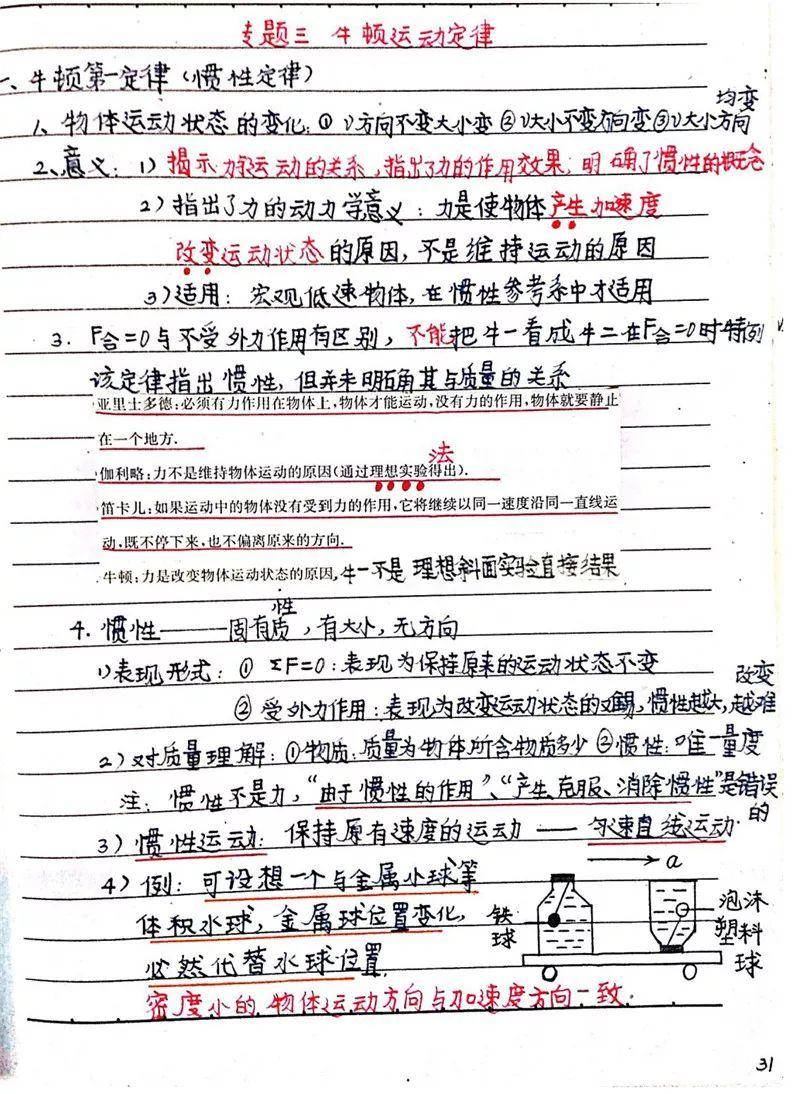 专题三 牛顿运动定律
一、牛顿第一定律(惯性定律)
1、物体运动状态的变化:① v方向不变大小变 ② v大小不变方向变 ③ v大小方向均变
2、意义:1) 揭示力与运动的关系,指出了力的作用效果,明确了惯性的概念
2) 指出了力的动力学意义:力是使物体产生加速度
改变运动状态的原因,不是维持运动的原因
3) 适用:宏观低速物体,在惯性参考系中才适用
3. F合=0与不受外力作用有区别,不能把牛一看成牛二在F合=0时特例
该定律指出惯性,但并未明确其与质量的关系
亚里士多德:必须有力作用在物体上,物体才能运动,没有力的作用,物体就要静止
在一个地方.
伽利略:力不是维持物体运动的原因(通过理想实验法得出).
笛卡儿:如果运动中的物体没有受到力的作用,它将继续以同一速度沿同一直线运
动,既不停下来,也不偏离原来的方向.
牛顿:力是改变物体运动状态的原因,牛一不是理想斜面实验直接结果
4. 惯性——固有性质,有大小,无方向
1) 表现形式:① ΣF=0:表现为保持原来的运动状态不变
② 受外力作用:表现为改变运动状态的难易,惯性越大,改变越难
2) 对质量理解:①物质:质量为物体所含物质多少 ②惯性:唯一量度
注:惯性不是力,“由于惯性的作用”、“产生、克服、消除惯性”是错误的
3) 惯性运动:保持原有速度的运动——匀速直线运动.
4) 例:可设想一个与金属小球等
体积水球,金属球位置变化,
必然代替水球位置.
密度小的物体运动方向与加速度方向一致.
a
铁球
泡沫塑料球
31